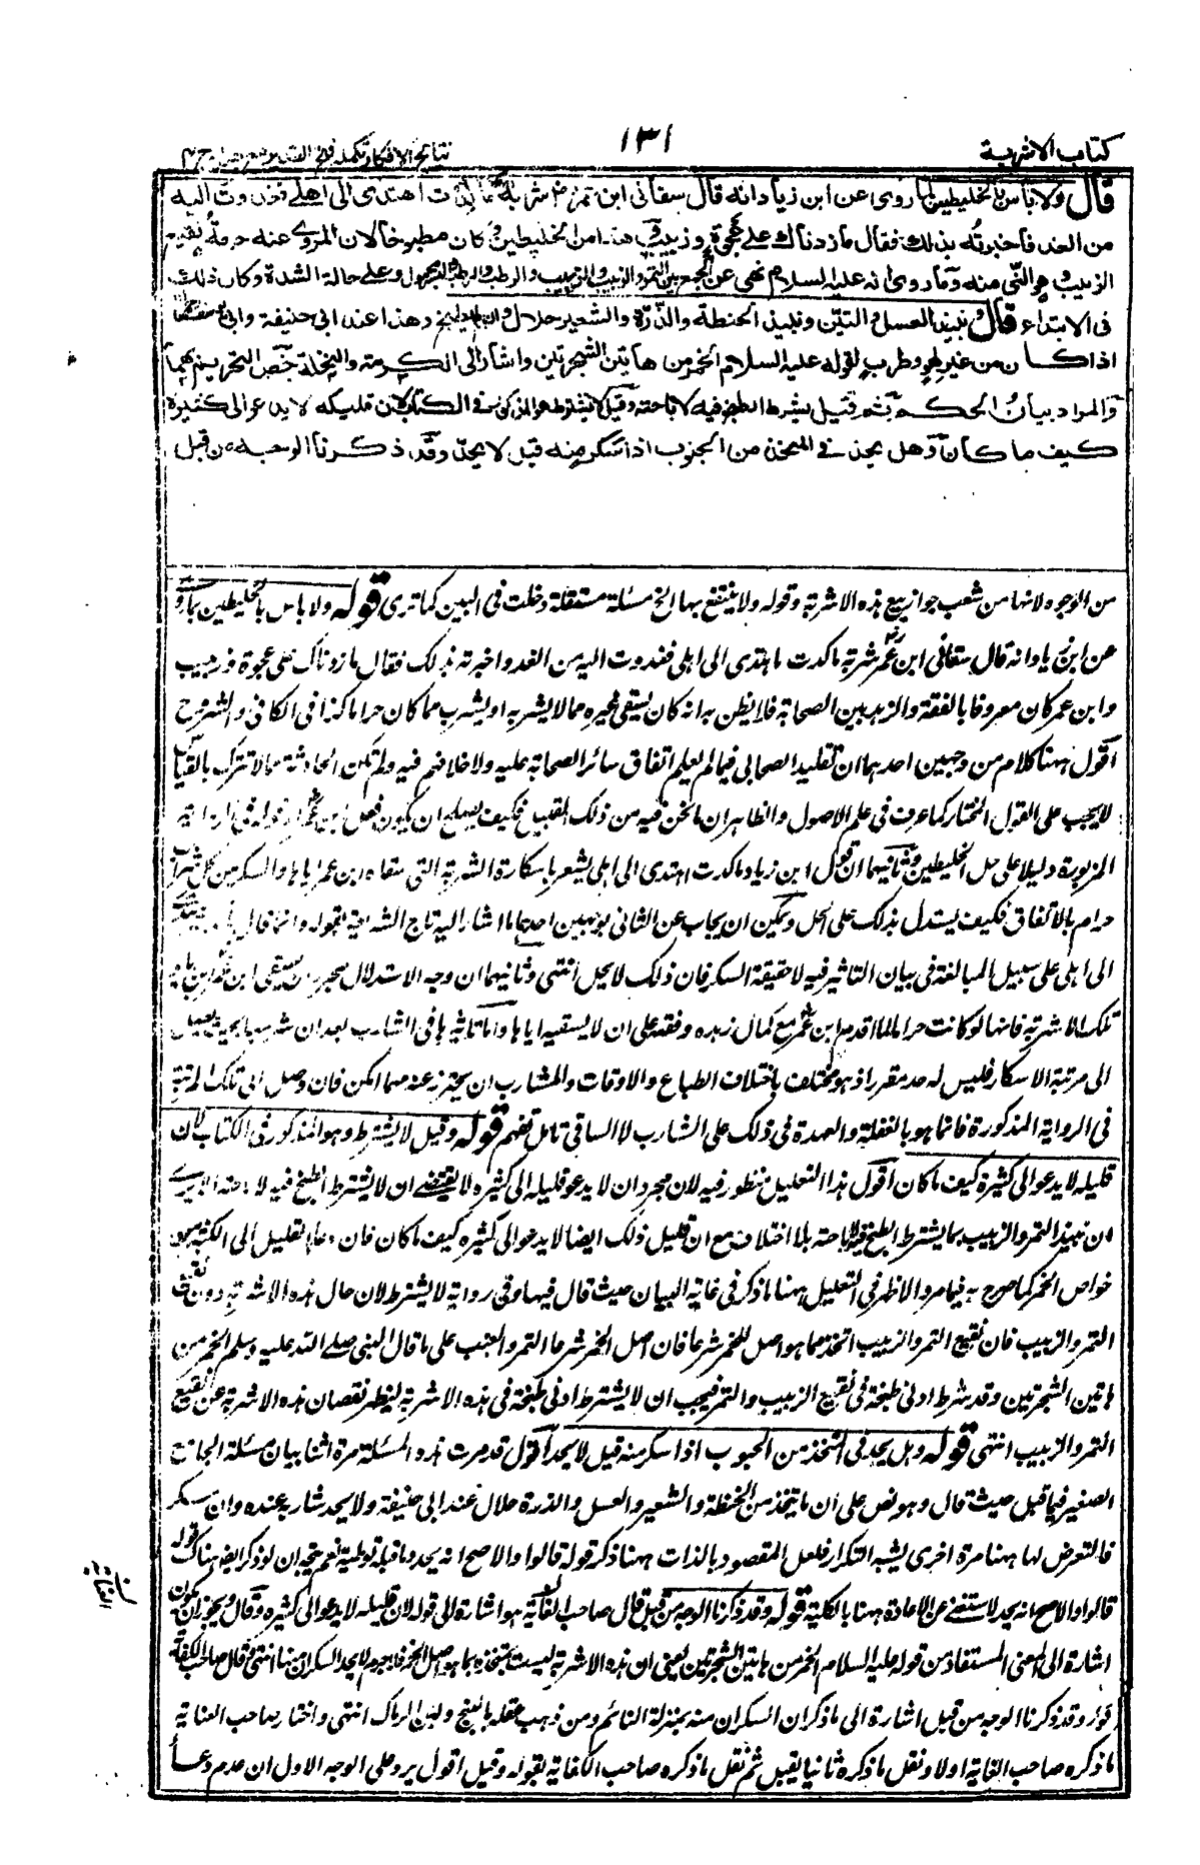 كتاب الاشربة
١٣١
نتائج الافكار تكملة فتح القدير مع هداية ج ٤
قال ولا باس بالخليطين لما روى عن ابن زياد انه قال سقانى ابن عمر رض شربة ما كدت اهتدى الى اهلى فغدوت اليه
من الغد فاخبرته بذلك فقال ما زدناك على عجوة وزبيب وهذا من الخليطين وكان مطبوخا لان المروى عنه حرمة نقيع
الزبيب وهو النى منه وما روى انه عليه السلام نهى عن الجمع بين التمر والزبيب والزبيب والرطب والرطب والبسر محمول على حالة الشدة وكان ذلك
فى الابتداء قال ونبيذ العسل والتين ونبيذ الحنطة والذرة والشعير حلال وان لم يطبخ وهذا عند ابى حنيفة وابى يوسف
اذا كان من غير لهو وطرب لقوله عليه السلام الخمر من هاتين الشجرتين واشار الى الكرمة والنخلة خص التحريم بهما
والمراد بيان الحكم ثم قيل يشترط الطبخ فيه لاباحته وقيل لا يشترط وهو المذكور فى الكتاب لان قليله لا يدعو الى كثيره
كيف ما كان وهل يحد فى المتخذ من الحبوب اذا سكر منه قيل لا يحد وقد ذكرنا الوجه من قبل
من الوجوه لانها من شعب جواز بيع هذه الاشربة وقوله ولا ينتفع بها الخ مسئلة مستقلة دخلت فى البين كما ترى قوله ولا باس بالخليطين لما روى
عن ابن زياد انه قال سقانى ابن عمر رض شربة ما كدت اهتدى الى اهلى فغدوت اليه من الغد واخبرته بذلك فقال ما زدناك على عجوة وزبيب
وابن عمر كان معروفا بالفقه والزهد بين الصحابة فلا يظن به انه كان يسقى غيره مما لا يشربه او يشرب مما كان حراما كذا فى الكافى والشروح
اقول ههنا كلام من وجهين احدهما ان تقليد الصحابى فيما لم يعلم اتفاق سائر الصحابة عليه ولا خلافهم فيه ولم تكن الحادثة مما لا تترك بالقياس
لا يجب على القول المختار كما عرف فى علم الاصول والظاهر ان ما نحن فيه من ذلك القبيل فكيف يصلح ان يكون فعل ابن عمر
المزبورة دليلا على حل الخليطين وثانيهما ان قول ابن زياد ما كدت اهتدى الى اهلى يشعر باسكار تلك الشربة التى سقاه ابن عمر اياها والسكر من كل شراب
حرام بالاتفاق فكيف يستدل بذلك على الحل ويمكن ان يجاب عن الثانى بوجهين احدهما ما اشار اليه تاج الشريعة بقوله وانما قال ما كدت اهتدى
الى اهلى على سبيل المبالغة فى بيان التاثير فيه لا حقيقة السكر فان ذلك لا يحل انتهى وثانيهما ان وجه الاستدلال مجرد ان سقى ابن عمر ابن زياد
تلك الاشربة فانها لو كانت حراما لما اقدم ابن عمر مع كمال زهده وفقهه على ان لا يسقيه اياها واما تاثيرها فى الشارب بعد ان شربها بحيث يصل
الى مرتبة الاسكار فليس له حد مقرر اذ هو مختلف باختلاف الطباع والاوقات والمشارب ان يحترز عنه مهما امكن فان وصل الى تلك المرتبة
فى الرواية المذكورة فانما هو بالغفلة والعهدة فى ذلك على الشارب لا الساقى تامل تفهم قوله وقيل لا يشترط وهو المذكور فى الكتاب لان
قليله لا يدعو الى كثيره كيف ما كان اقول هذا التعليل منظور فيه لان مجرد ان لا يدعو قليله الى كثيره لا يقتضى ان لا يشترط الطبخ فيه لاباحته الا يرى
ان نبيذ التمر والزبيب مما يشترط الطبخ فيه لاباحته بلا اختلاف مع ان قليل ذلك ايضا لا يدعو الى كثيره كيف ما كان فان دعاء القليل الى الكثير من
خواص الخمر كما صرح به فيما مر والاظهر فى التعليل ههنا ما ذكر فى غاية البيان حيث قال فيها وفى رواية لا يشترط لان حال هذه الاشربة دون نقيع
التمر والزبيب فان نقيع التمر والزبيب اتخذ مما هو اصل للخمر شرعا فان اصل الخمر شرعا التمر والعنب على ما قال النبى صلى الله عليه وسلم الخمر من
هاتين الشجرتين وقد شرط ادنى طبخة فى نقيع الزبيب والتمر فيجب ان لا يشترط ادنى طبخة فى هذه الاشربة ليظهر نقصان هذه الاشربة عن نقيع
التمر والزبيب انتهى قوله وهل يحد فى المتخذ من الحبوب اذا سكر منه قيل لا يحد اقول قد مرت هذه المسئلة مرة اثناء بيان مسئلة الجامع
الصغير فيما قبل حيث قال وهو نص على ان ما يتخذ من الحنطة والشعير والعسل والذرة حلال عند ابى حنيفة ولا يحد شاربه عنده وان سكر
فالتعرض لها ههنا مرة اخرى يشبه التكرار فلعل المقصود بالذات ههنا ذكر قوله قالوا والاصح انه يحد وما قبله توطية نعم يتجه ان لو ذكر ايضا هناك قوله
قالوا والاصح انه يحد لاستغنى عن الاعادة ههنا بالكلية قوله وقد ذكرنا الوجه من قبل قال صاحب الغاية هو اشارة الى قوله لان قليله لا يدعو الى كثيره وقال ويجوز ان يكون
اشارة الى المعنى المستفاد من قوله عليه السلام الخمر من هاتين الشجرتين يعنى ان هذه الاشربة ليست بمتخذة مما هو اصل الخمر فلا يحد السكران منها انتهى وقال صاحب الكفاية
قوله وقد ذكرنا الوجه من قبل اشارة الى ما ذكر ان السكران منه بمنزلة النائم ومن ذهب عقله بالبنج ولبن الرماك انتهى واختار صاحب العناية
ما ذكره صاحب الغاية اولا ونقل ما ذكره ثانيا بقيل ثم نقل ما ذكره صاحب الكفاية بقوله وقيل اقول يرد على الوجه الاول ان عدم دعا